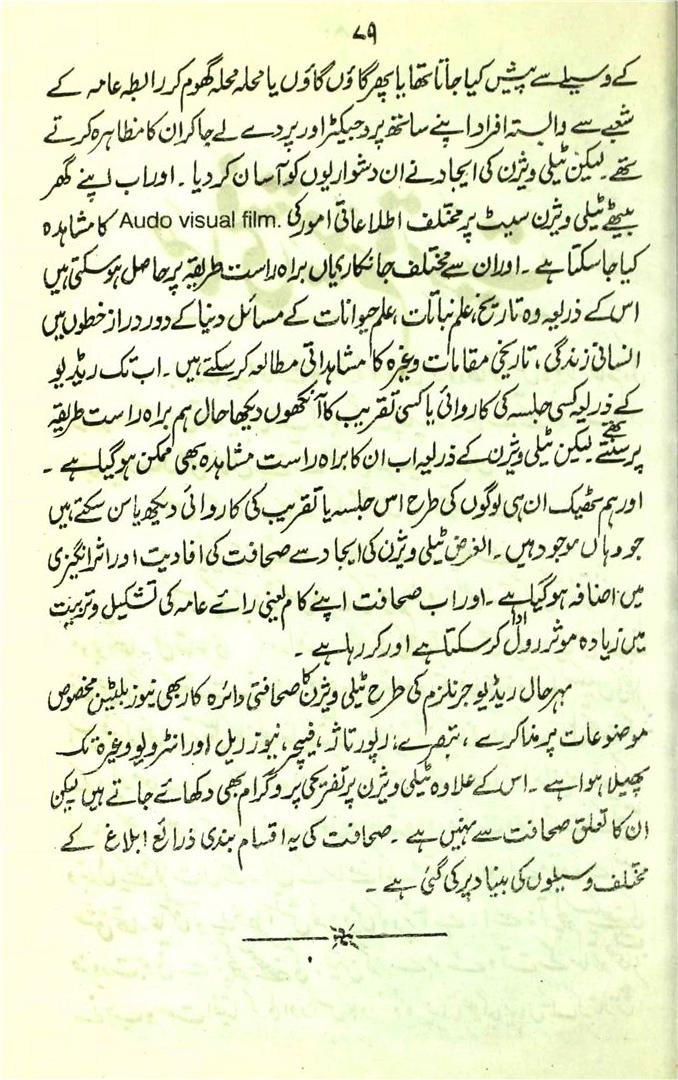 ۷۹
کے وسیلے سے پیش کیا جاتا تھا یا پھر گاؤں گاؤں یا محلہ محلہ گھوم کر رابطہ عامہ کے
شعبے سے وابستہ افراد اپنے ساتھ پروجیکٹر اور پردے لے جا کر ان کا مظاہرہ کرتے
تھے۔ لیکن ٹیلی ویژن کی ایجاد نے ان دشواریوں کو آسان کر دیا۔ اور اب اپنے گھر
بیٹھے ٹیلی ویژن سیٹ پر مختلف اطلاعاتی امور کی Audo visual film. کا مشاہدہ
کیا جا سکتا ہے۔ اور ان سے مختلف جانکاریاں براہ راست طریقہ پر حاصل ہو سکتی ہیں
اس کے ذریعہ وہ تاریخ، علم نباتات، علم حیوانات کے مسائل دنیا کے دور دراز خطوں میں
انسانی زندگی، تاریخی مقامات وغیرہ کا مشاہداتی مطالعہ کر سکتے ہیں۔ اب تک ریڈیو
کے ذریعہ کسی جلسہ کی کاروائی یا کسی تقریب کا آنکھوں دیکھا حال ہم براہ راست طریقہ
پر سنتے تھے لیکن ٹیلی ویژن کے ذریعہ اب ان کا براہ راست مشاہدہ بھی ممکن ہو گیا ہے۔
اور ہم ٹھیک ان ہی لوگوں کی طرح اس جلسہ یا تقریب کی کاروائی دیکھ یا سن سکتے ہیں
جو وہاں موجود ہیں۔ الغرض ٹیلی ویژن کی ایجاد سے صحافت کی افادیت اور اثر انگیزی
میں اضافہ ہو گیا ہے۔ اور اب صحافت اپنے کام یعنی رائے عامہ کی تشکیل و تربیت
میں زیادہ موثر رول ادا کر سکتا ہے اور کر رہا ہے۔
بہرحال ریڈیو جرنلزم کی طرح ٹیلی ویژن کا صحافتی دائرہ کار بھی نیوز بلیٹین مخصوص
موضوعات پر مذاکرے، تبصرے، رپورتاژ، فیچر، نیوز ریل اور انٹرویو وغیرہ تک
پھیلا ہوا ہے۔ اس کے علاوہ ٹیلی ویژن پر تفریحی پروگرام بھی دکھائے جاتے ہیں لیکن
ان کا تعلق صحافت سے نہیں ہے۔ صحافت کی یہ اقسام بندی ذرائع ابلاغ کے
مختلف وسیلوں کی بنیاد پر کی گئی ہے۔